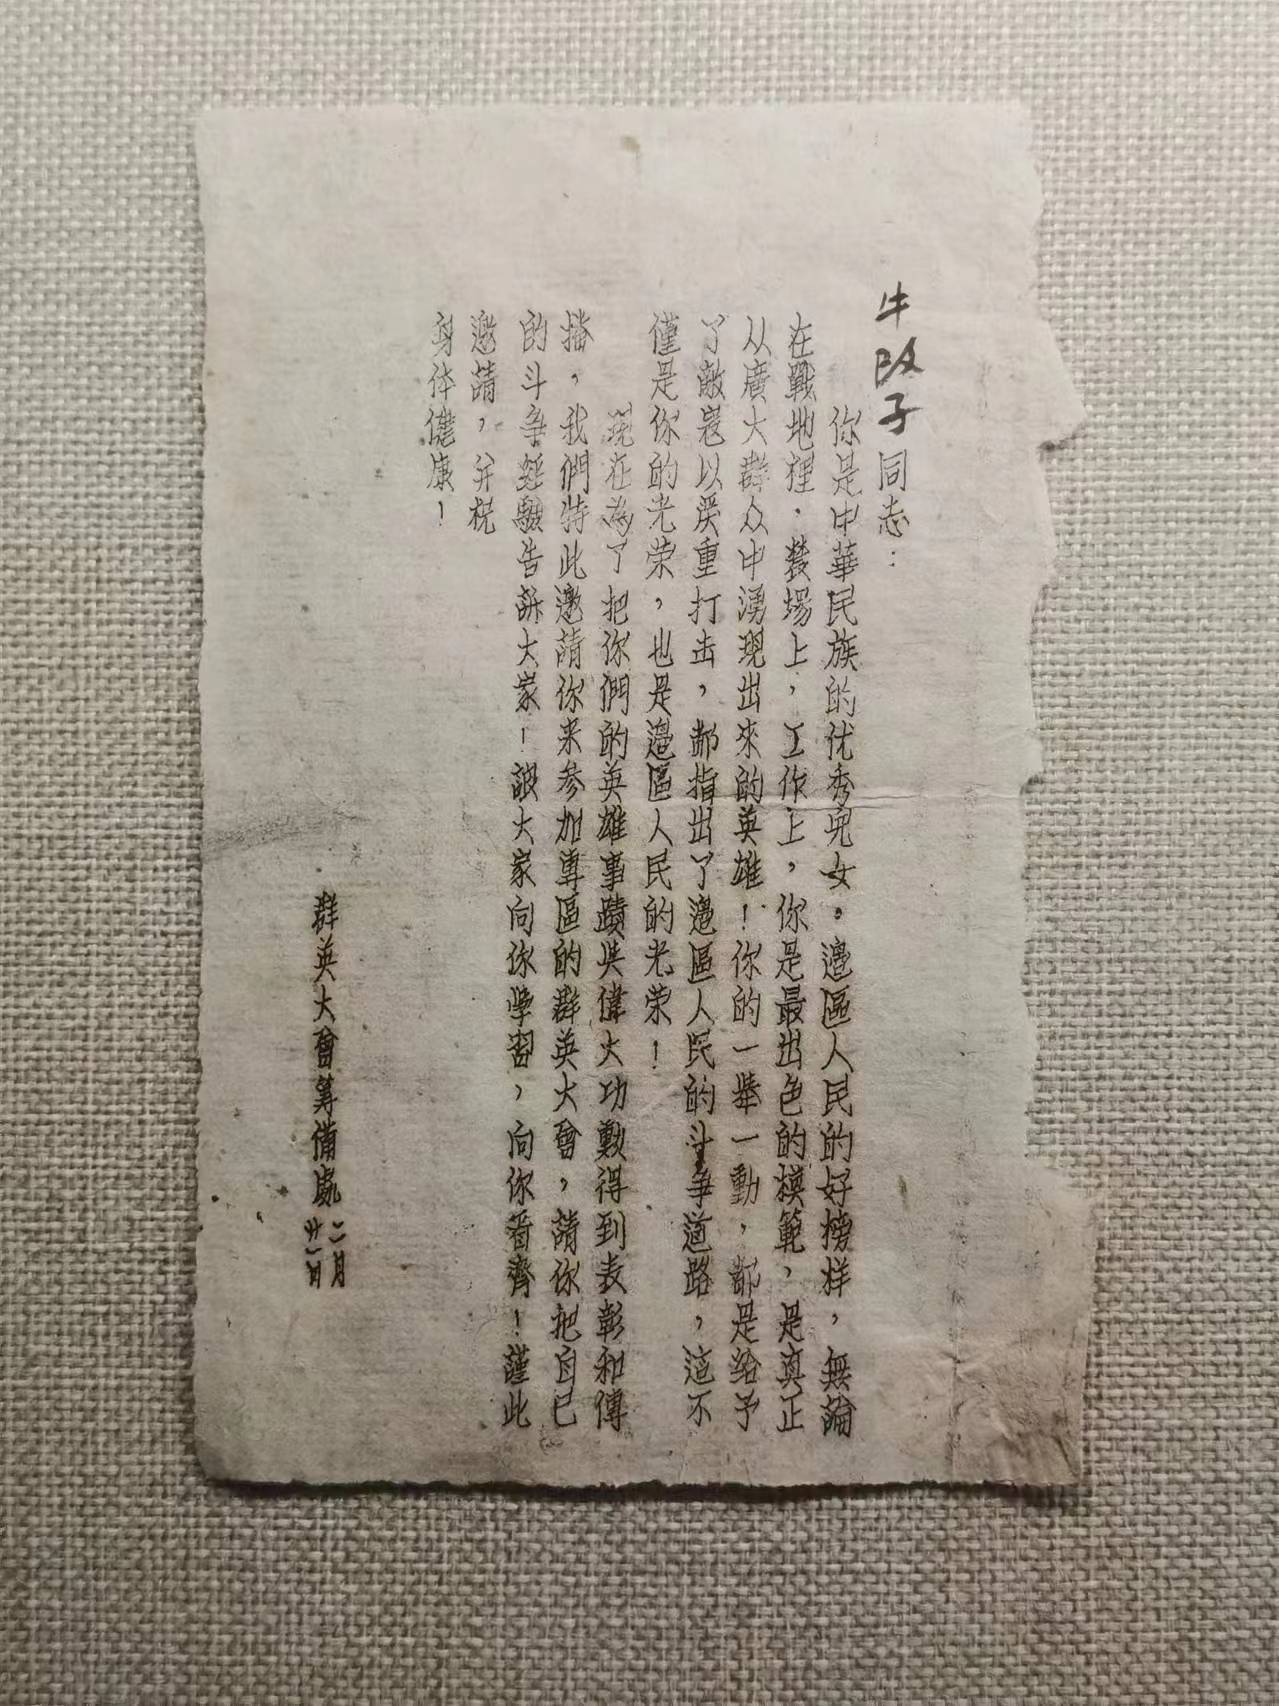 牛改子同志：
你是中華民族的优秀兒女。邊區人民的好榜样，無論
在戰地裡．農場上，工作上，你是最出色的模範，是真正
从廣大群众中湧現出來的英雄！你的一舉一動，都是給予
了敵寇以严重打击，都指出了邊區人民的斗争道路，這不
僅是你的光荣，也是邊區人民的光荣！
現在為了把你們的英雄事蹟與偉大功勳得到表彰和傳
播，我們特此邀請你来参加專區的群英大會，請你把自己
的斗争經驗告訴大家！讓大家向你學習，向你看齊！謹此
邀請，并祝
身体健康！
群英大會籌備處
二月
廿一日